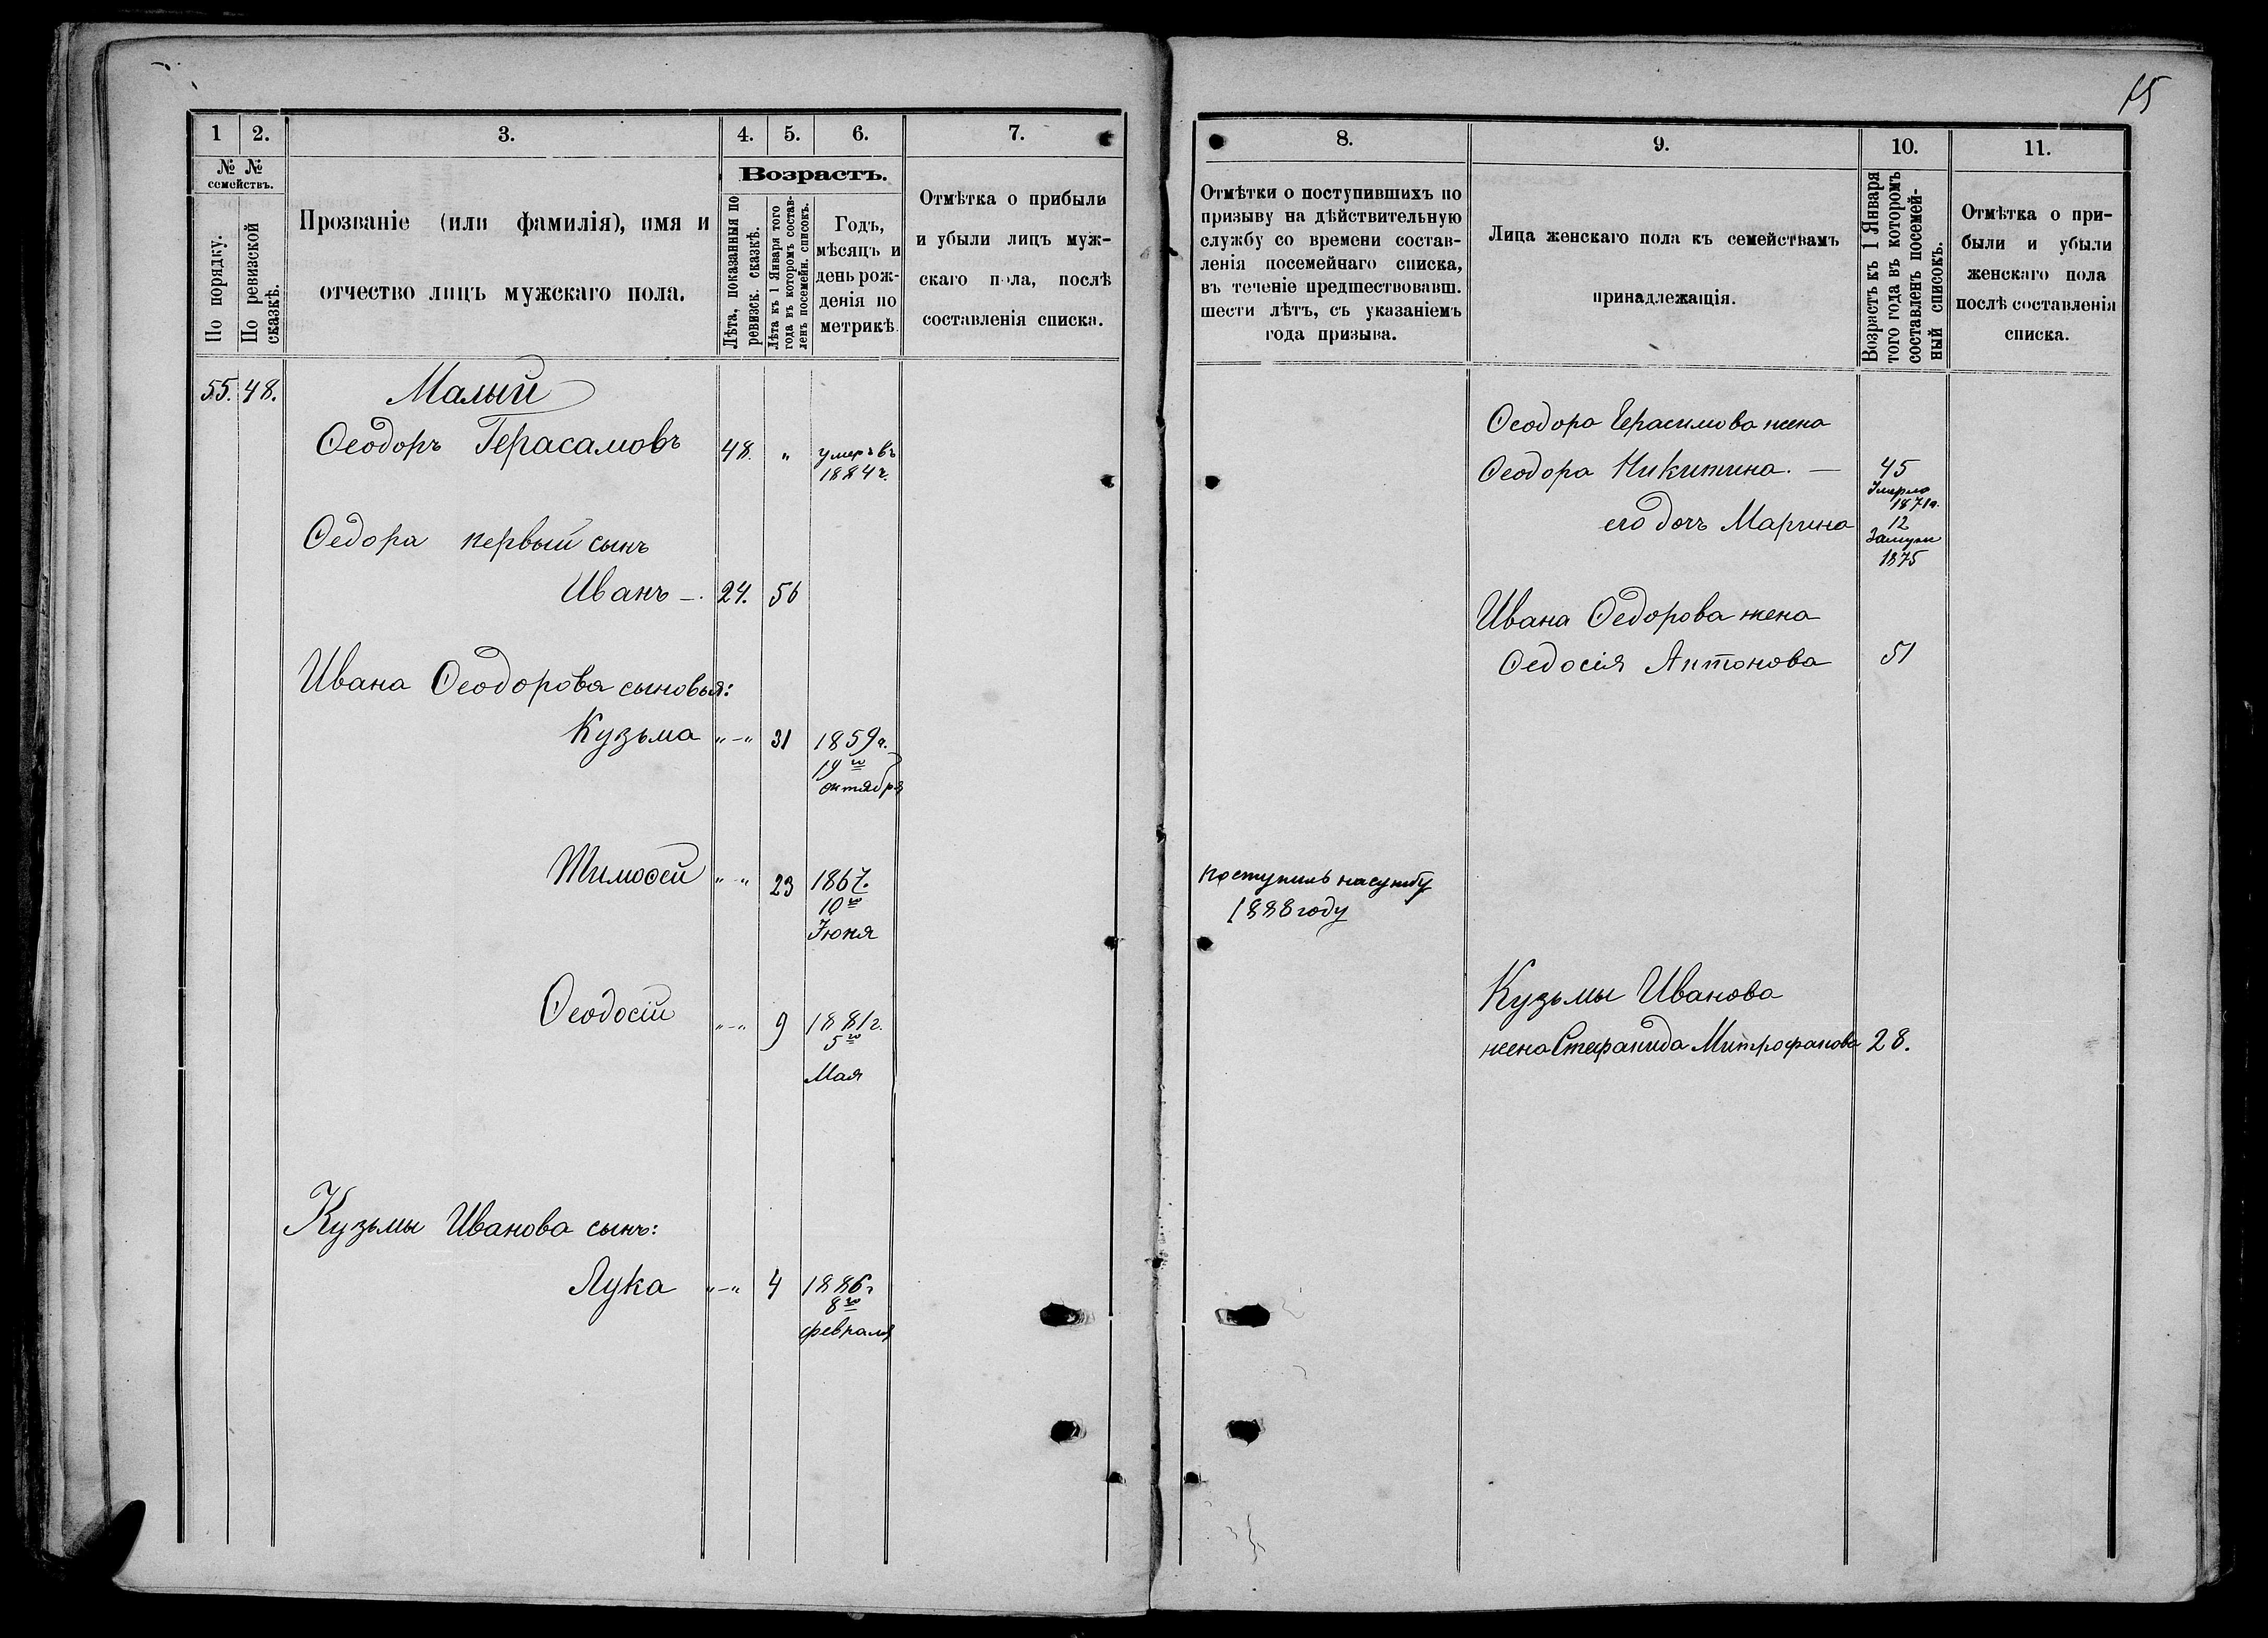 15
1
2.
3.
4.
5.
6.
7.
№ №
семействъ.
По порядку.
По ревизской
сказкѣ.
Прозваніе (или фамилія), имя и
отчество лицъ мужскаго пола.
Возрастъ.
Лѣта, показанныя по
ревизск. сказкѣ.
Лѣта къ 1 Января того
года въ которомъ состав-
ленъ посемейн. списокъ.
Годъ,
мѣсяцъ и
день рож-
денія по
метрикѣ.
Отмѣтка о прибыли
и убыли лицъ муж-
скаго пола, послѣ
составленія списка.
55. 48. Малый
Ѳеодоръ Герасамовъ 48. " умеръ въ
1884 г.
Ѳедора первый сынъ
Иванъ —. 24. 56
Ивана Ѳеодорова сыновья:
Кузьма "–" 31 1859 г.
19го
октября
Тимоѳей "–" 23 1867.
10го
Іюня
Ѳеодосій "–" 9 1881 г.
5го
Мая
Кузьмы Иванова сынъ:
Лука "–" 4 1886 г
8го
февраля
8.
9.
10.
11.
Отмѣтки о поступившихъ по
призыву на дѣйствительную
службу со времени состав-
ленія посемейнаго списка,
въ теченіе предшествовавш.
шести лѣтъ, съ указаніемъ
года призыва.
Лица женскаго пола къ семействамъ
принадлежащія.
Возрастъ къ 1 Января
того года въ которомъ
составленъ посемей-
ный списокъ.
Отмѣтка о при-
были и убыли
женскаго пола
послѣ составленія
списка.
Ѳеодора Герасимова жена
Ѳеодора Никитина. — 45
Умерла
1871 г.
его дочь Марина 12
Замужи
1875
Ивана Ѳедорова жена
Ѳедосія Антонова 51
поступилъ насужбу
1888 году
Кузьмы Иванова
жена Стефанида Митрофанова 28.